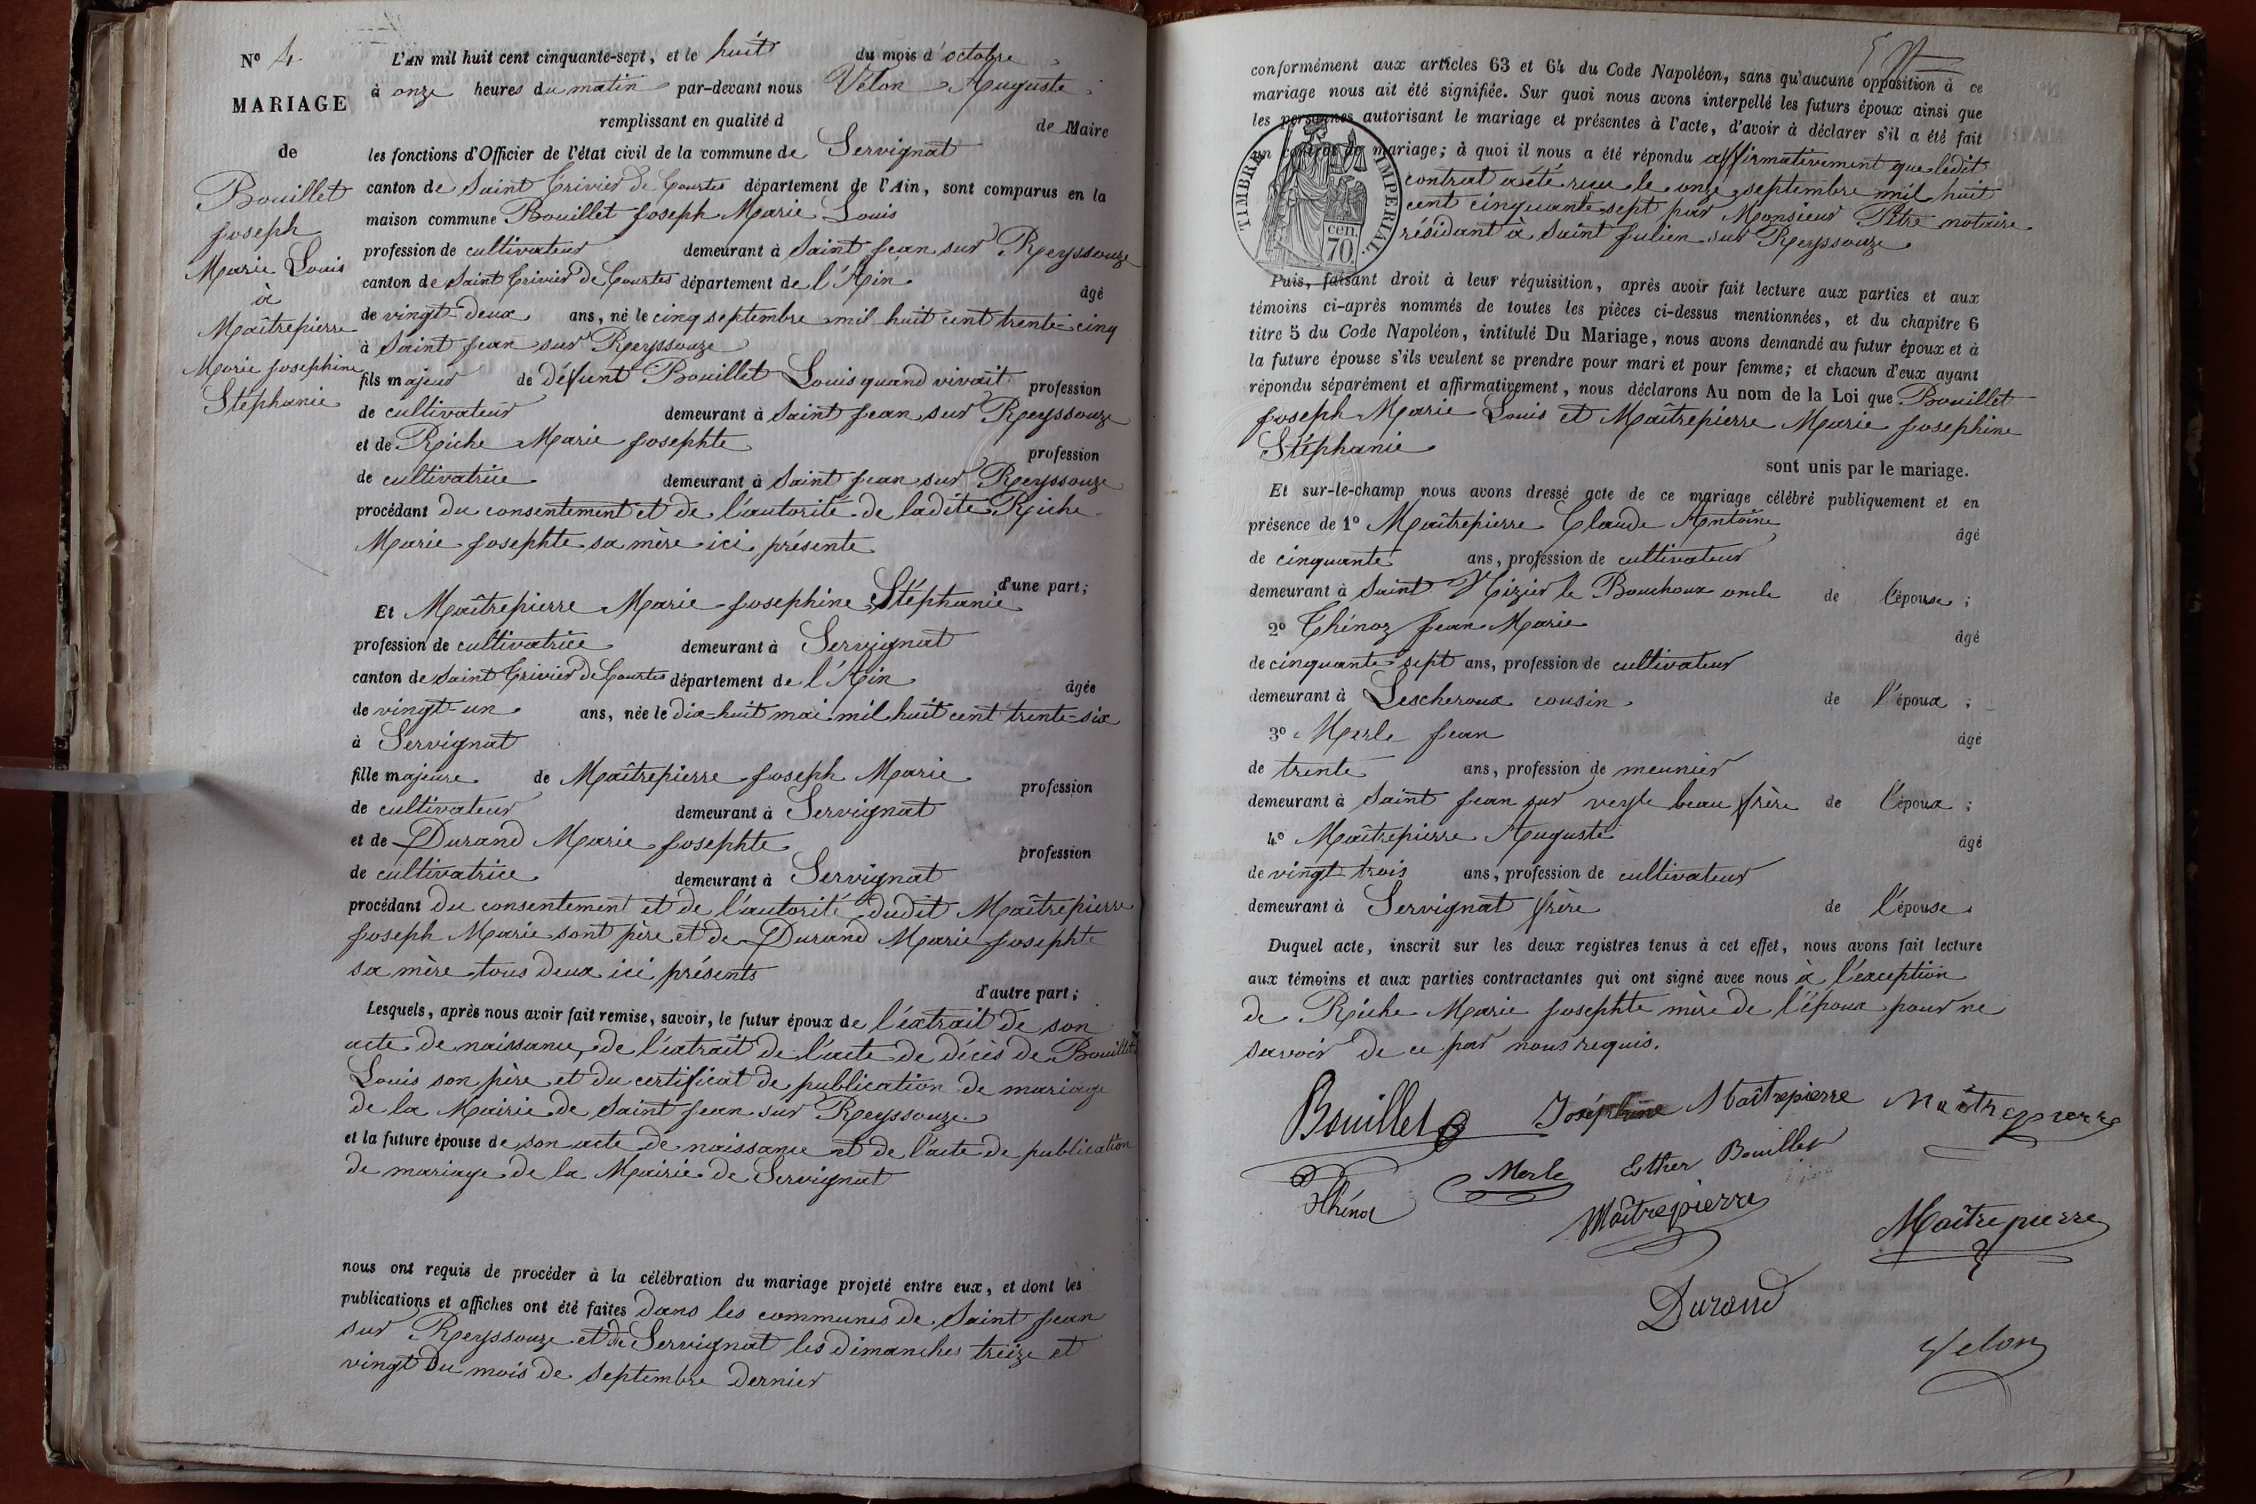 N° 4
MARIAGE
de
Bouillet
Joseph
Marie Louis
à
Maîtrepierre
Marie Josephine
Stéphanie
L'AN mil huit cent cinquante-sept, et le huit du mois d'octobre
à onze heures du matin par-devant nous Velon Auguste
remplissant en qualité d de Maire
les fonctions d'Officier de l'état civil de la commune de Servignat
canton de Saint Trivier de Courtes département de l'Ain, sont comparus en la
maison commune Bouillet Joseph Marie Louis
profession de cultivateur demeurant à Saint Jean sur Reyssouze
canton de Saint Trivier de Courtes département de l'Ain âgé
de vingt-deux ans, né le cinq septembre mil huit cent trente-cinq
à Saint Jean sur Reyssouze
fils majeur de défunt Bouillet Louis quand vivait profession
de cultivateur demeurant à Saint Jean sur Reyssouze
et de Riche Marie Josephte profession
de cultivatrice demeurant à Saint Jean sur Reyssouze
procédant du consentement et de l'autorité de ladite Riche
Marie Josephte sa mère ici présente
d'une part;
Et Maîtrepierre Marie Josephine Stéphanie
profession de cultivatrice demeurant à Servignat
canton de Saint Trivier de Courtes département de l'Ain âgée
de vingt-un ans, née le dix-huit mai mil huit cent trente-six
à Servignat
fille majeure de Maîtrepierre Joseph Marie profession
de cultivateur demeurant à Servignat
et de Durand Marie Josephte profession
de cultivatrice demeurant à Servignat
procédant du consentement et de l'autorité dudit Maîtrepierre
Joseph Marie sont père et de Durand Marie Josephte
sa mère tous deux ici présents
d'autre part;
Lesquels, après nous avoir fait remise, savoir, le futur époux de l'extrait de son
acte de naissance, de l'extrait de l'acte de décès de Bouillet
Louis son père et du certificat de publication de mariage
de la Mairie de Saint Jean sur Reyssouze
et la future épouse de son acte de naissance et de l'acte de publication
de mariage de la Mairie de Servignat
nous ont requis de procéder à la célébration du mariage projeté entre eux, et dont les
publications et affiches ont été faites dans les communes de Saint Jean
sur Reyssouze et de Servignat les dimanches treize et
vingt du mois de septembre dernier
conformément aux articles 63 et 64 du Code Napoléon, sans qu'aucune opposition à ce
mariage nous ait été signifiée. Sur quoi nous avons interpellé les futurs époux ainsi que
les personnes autorisant le mariage et présentes à l'acte, d'avoir à déclarer s'il a été fait
un contrat de mariage; à quoi il nous a été répondu affirmativement que ledit
contrat a été reçu le onze septembre mil huit
cent cinquante sept par Monsieur Pitre notaire
résidant à Saint Julien sur Reyssouze
TIMBRE IMPERIAL.
cen.
70.
Puis, faisant droit à leur réquisition, après avoir fait lecture aux parties et aux
témoins ci-après nommés de toutes les pièces ci-dessus mentionnées, et du chapitre 6
titre 5 du Code Napoléon, intitulé Du Mariage, nous avons demandé au futur époux et à
la future épouse s'ils veulent se prendre pour mari et pour femme; et chacun d'eux ayant
répondu séparément et affirmativement, nous déclarons Au nom de la Loi que Bouillet
Joseph Marie Louis et Maîtrepierre Marie Josephine
Stéphanie
sont unis par le mariage.
Et sur-le-champ nous avons dressé acte de ce mariage célébré publiquement et en
présence de 1° Maîtrepierre Claude Antoine âgé
de cinquante ans, profession de cultivateur
demeurant à Saint Nizier le Bouchoux oncle de l'épouse;
2° Thénoz Jean Marie âgé
de cinquante sept ans, profession de cultivateur
demeurant à Lescheroux cousin de l'époux;
3° Merle Jean âgé
de trente ans, profession de meunier
demeurant à Saint Jean sur veyle beau frère de l'époux;
4° Maîtrepierre Auguste âgé
de vingt-trois ans, profession de cultivateur
demeurant à Servignat frère de l'épouse
Duquel acte, inscrit sur les deux registres tenus à cet effet, nous avons fait lecture
aux témoins et aux parties contractantes qui ont signé avec nous à l'exception
de Riche Marie Josephte mère de l'époux pour ne
savoir de ce par nous requis.
Bouillet Joséphine Maîtrepierre Maîtrepierre
Thénoz Merle Esther Bouillet
Maîtrepierre Maîtrepierre
Durand
Velon